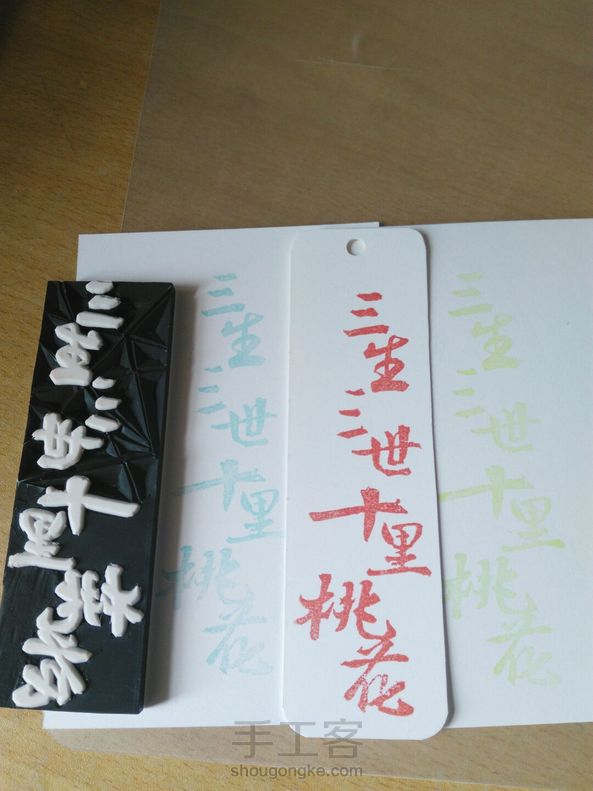 三生三世十里桃花
三生三世十里桃花
三生三世十里桃花
手工客
shougongke.com